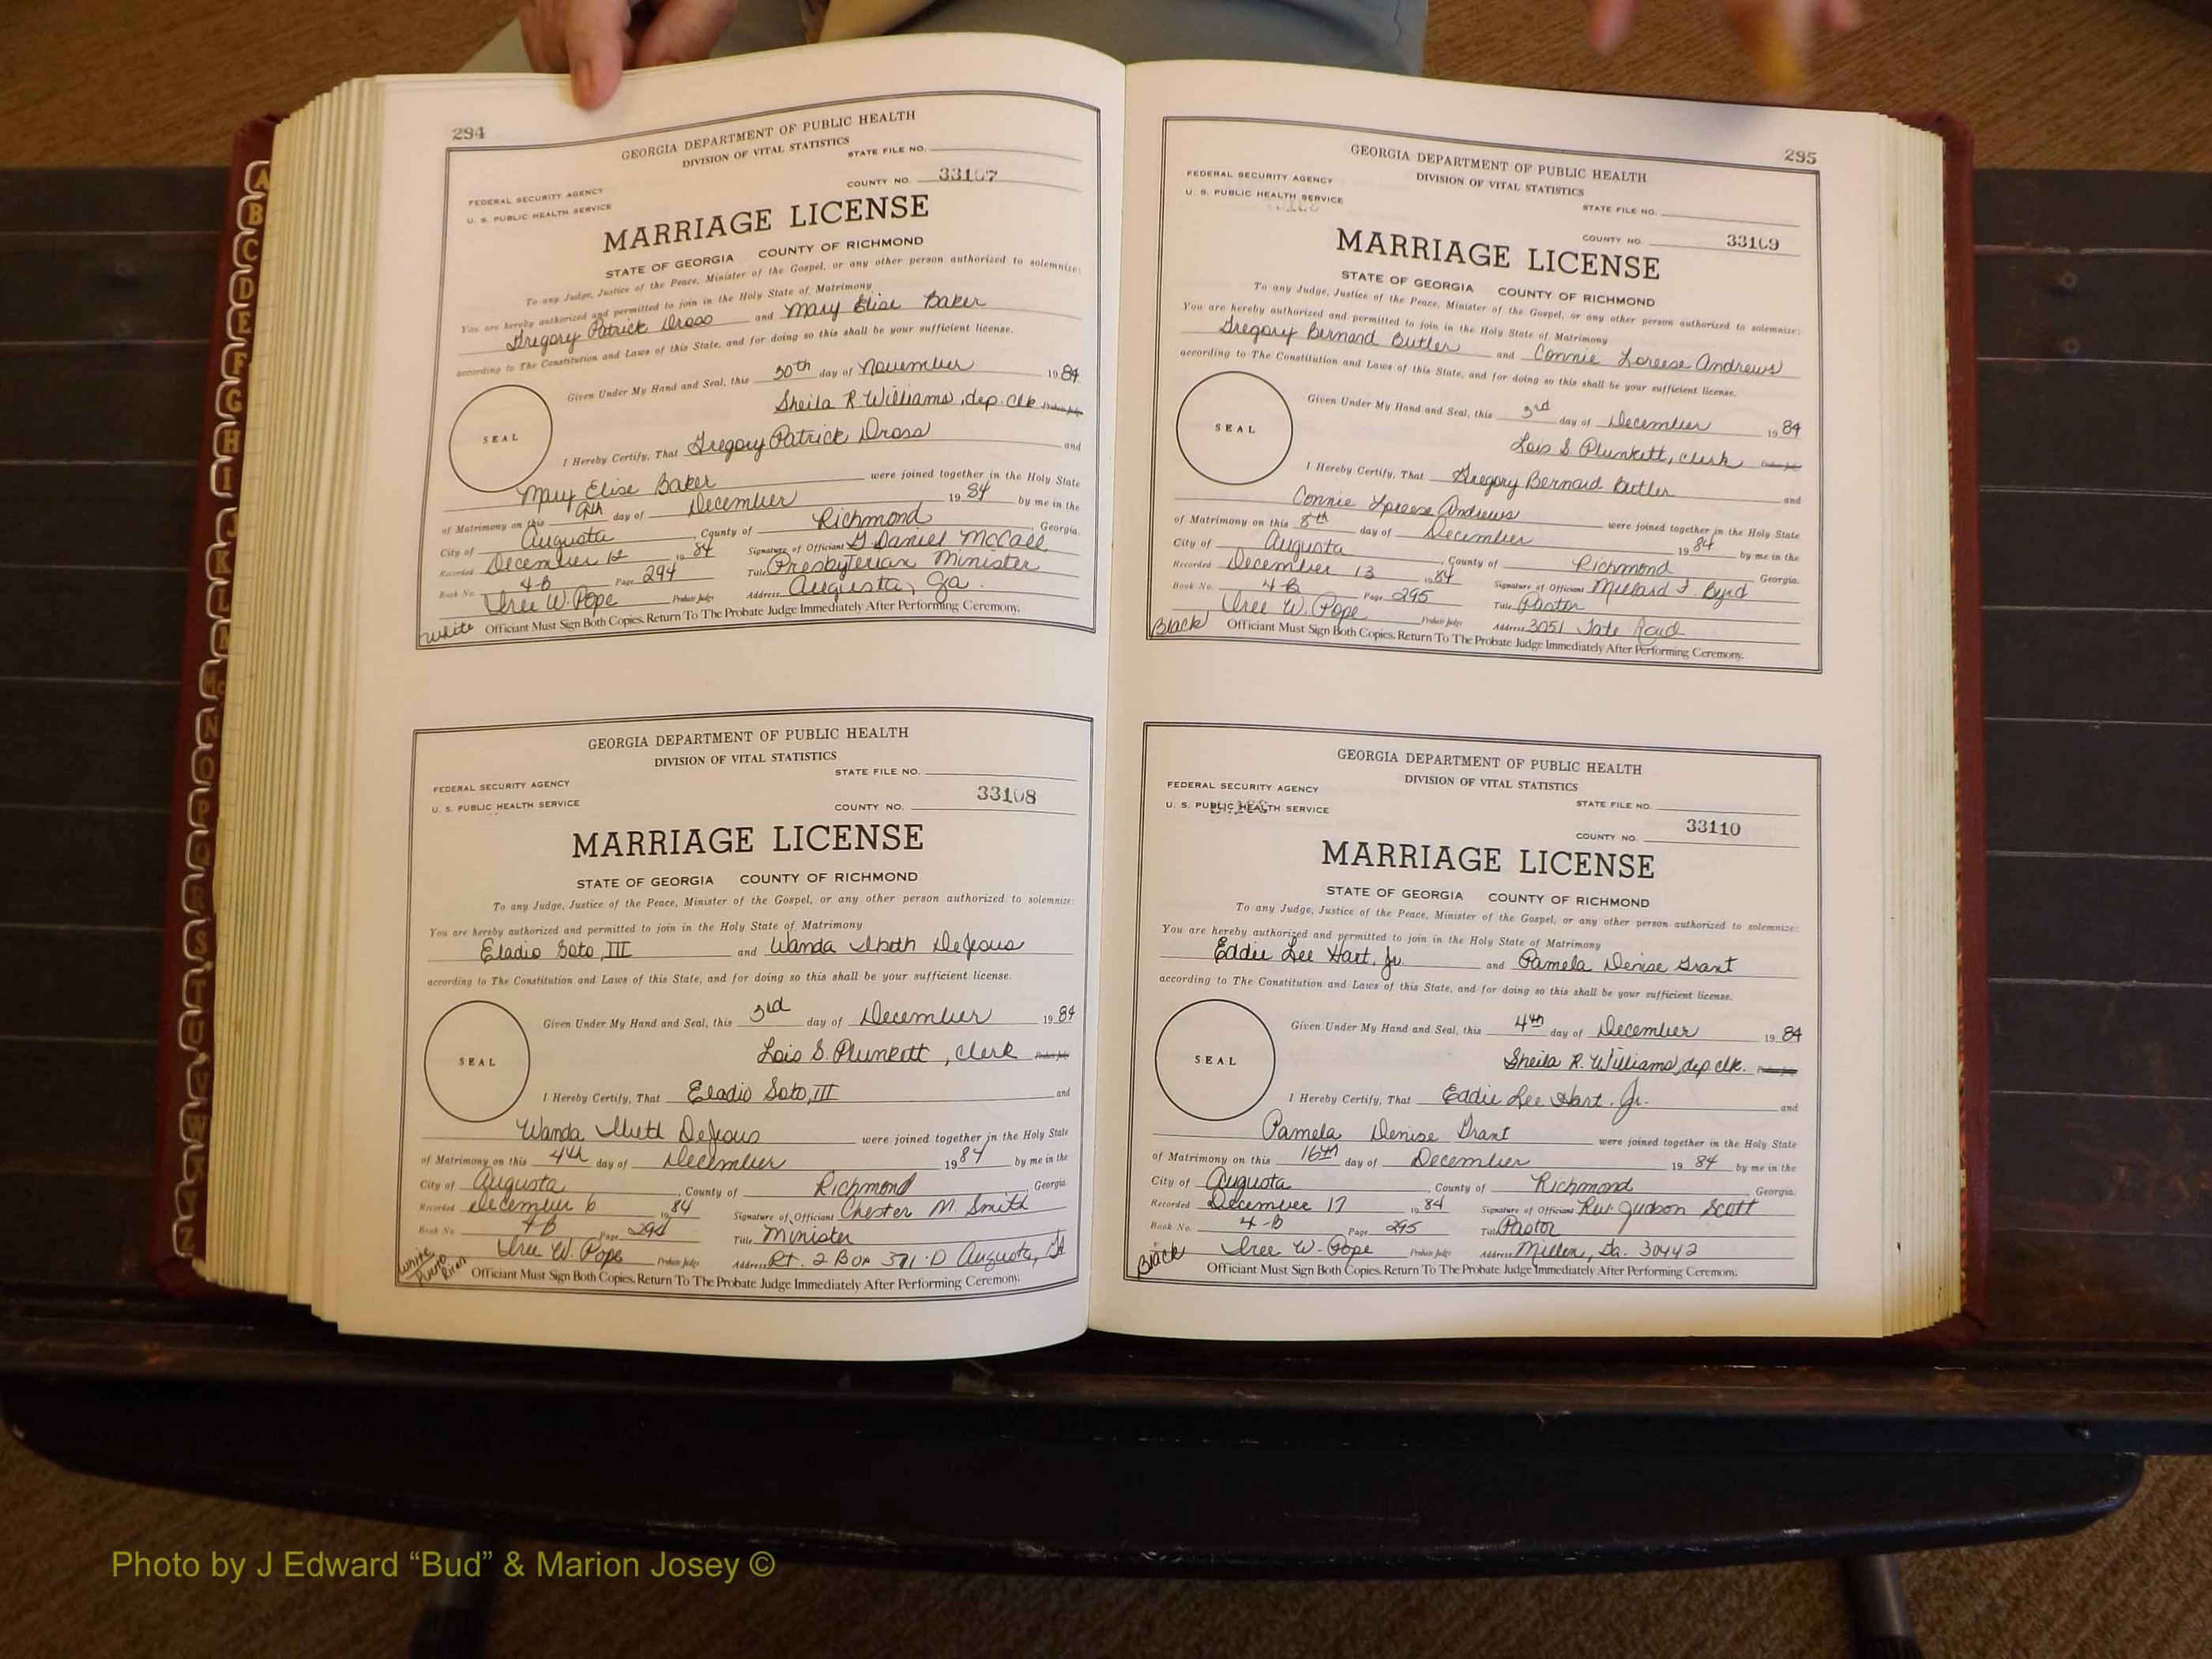 294
GEORGIA DEPARTMENT OF PUBLIC HEALTH
DIVISION OF VITAL STATISTICS
STATE FILE NO.
FEDERAL SECURITY AGENCY
U. S. PUBLIC HEALTH SERVICE
COUNTY NO. 33107
MARRIAGE LICENSE
STATE OF GEORGIA COUNTY OF RICHMOND
To any Judge, Justice of the Peace, Minister of the Gospel, or any other person authorized to solemnize:
You are hereby authorized and permitted to join in the Holy State of Matrimony
Gregory Patrick Dross and Mary Elise Baker
according to The Constitution and Laws of this State, and for doing so this shall be your sufficient license.
Given Under My Hand and Seal, this 30th day of November 1984
Sheila R. Williams, dep. clk Probate Judge
SEAL
I Hereby Certify, That Gregory Patrick Dross and
Mary Elise Baker were joined together in the Holy State
of Matrimony on this day of December 1984 by me in the
City of Augusta, County of Richmond, Georgia.
Recorded December 12 1984 Signature of Officiant G. Daniel McCall
Book No. 4-B Page 294 Title Presbyterian Minister
Iree W. Pope Probate Judge Address Augusta, Ga.
White Officiant Must Sign Both Copies. Return To The Probate Judge Immediately After Performing Ceremony.
GEORGIA DEPARTMENT OF PUBLIC HEALTH
DIVISION OF VITAL STATISTICS
STATE FILE NO.
FEDERAL SECURITY AGENCY
U. S. PUBLIC HEALTH SERVICE
COUNTY NO. 33108
MARRIAGE LICENSE
STATE OF GEORGIA COUNTY OF RICHMOND
To any Judge, Justice of the Peace, Minister of the Gospel, or any other person authorized to solemnize:
You are hereby authorized and permitted to join in the Holy State of Matrimony
Eladio Soto, III and Wanda DeJesus
according to The Constitution and Laws of this State, and for doing so this shall be your sufficient license.
Given Under My Hand and Seal, this 3rd day of December 1984
Lois S. Plunkett, clerk Probate Judge
SEAL
I Hereby Certify, That Eladio Soto, III and
Wanda DeJesus were joined together in the Holy State
of Matrimony on this 4th day of December 1984 by me in the
City of Augusta, County of Richmond, Georgia
Recorded December 6 1984 Signature of Officiant Chester M. Smith
Book No. 4-B Page 294 Title Minister
Iree W. Pope Probate Judge Address Rt. 2 Box 371-D Augusta, Ga
White Puerto Rican Officiant Must Sign Both Copies. Return To The Probate Judge Immediately After Performing Ceremony.
295
GEORGIA DEPARTMENT OF PUBLIC HEALTH
DIVISION OF VITAL STATISTICS
FEDERAL SECURITY AGENCY
U. S. PUBLIC HEALTH SERVICE
STATE FILE NO.
COUNTY NO. 33109
MARRIAGE LICENSE
STATE OF GEORGIA COUNTY OF RICHMOND
To any Judge, Justice of the Peace, Minister of the Gospel, or any other person authorized to solemnize:
You are hereby authorized and permitted to join in the Holy State of Matrimony
Gregory Bernard Butler and Connie Loreese Andrews
according to The Constitution and Laws of this State, and for doing so this shall be your sufficient license.
Given Under My Hand and Seal, this 3rd day of December 1984
Lois S. Plunkett, clerk Probate Judge
SEAL
I Hereby Certify, That Gregory Bernard Butler and
Connie Loreese Andrews were joined together in the Holy State
of Matrimony on this 8th day of December 1984 by me in the
City of Augusta, County of Richmond Georgia.
Recorded December 13 1984 Signature of Officiant Millard J. Byrd
Book No. 4-B Page 295 Title Pastor
Iree W. Pope Probate Judge Address 3051 Tate Road
Black Officiant Must Sign Both Copies. Return To The Probate Judge Immediately After Performing Ceremony.
GEORGIA DEPARTMENT OF PUBLIC HEALTH
DIVISION OF VITAL STATISTICS
FEDERAL SECURITY AGENCY
U. S. PUBLIC HEALTH SERVICE
STATE FILE NO.
COUNTY NO. 33110
MARRIAGE LICENSE
STATE OF GEORGIA COUNTY OF RICHMOND
To any Judge, Justice of the Peace, Minister of the Gospel, or any other person authorized to solemnize:
You are hereby authorized and permitted to join in the Holy State of Matrimony
Eddie Lee Hart, Jr. and Pamela Denise Grant
according to The Constitution and Laws of this State, and for doing so this shall be your sufficient license.
Given Under My Hand and Seal, this 4th day of December 1984
Sheila R. Williams, dep. clk. Probate Judge
SEAL
I Hereby Certify, That Eddie Lee Hart, Jr. and
Pamela Denise Grant were joined together in the Holy State
of Matrimony on this 16th day of December 1984 by me in the
City of Augusta, County of Richmond Georgia.
Recorded December 17 1984 Signature of Officiant Rev. Judson Scott
Book No. 4-B Page 295 Title Pastor
Iree W. Pope Probate Judge Address Millen, Ga. 30442
Black Officiant Must Sign Both Copies. Return To The Probate Judge Immediately After Performing Ceremony.
A
B
C
D
E
F
G
H
I
J
K
L
M
Mc
N
O
P
Q
R
S
T
U
V
W
X
Y
Z
Photo by J Edward “Bud” & Marion Josey ©